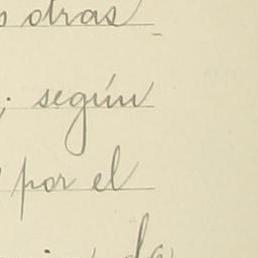 otras
; según
por el
da